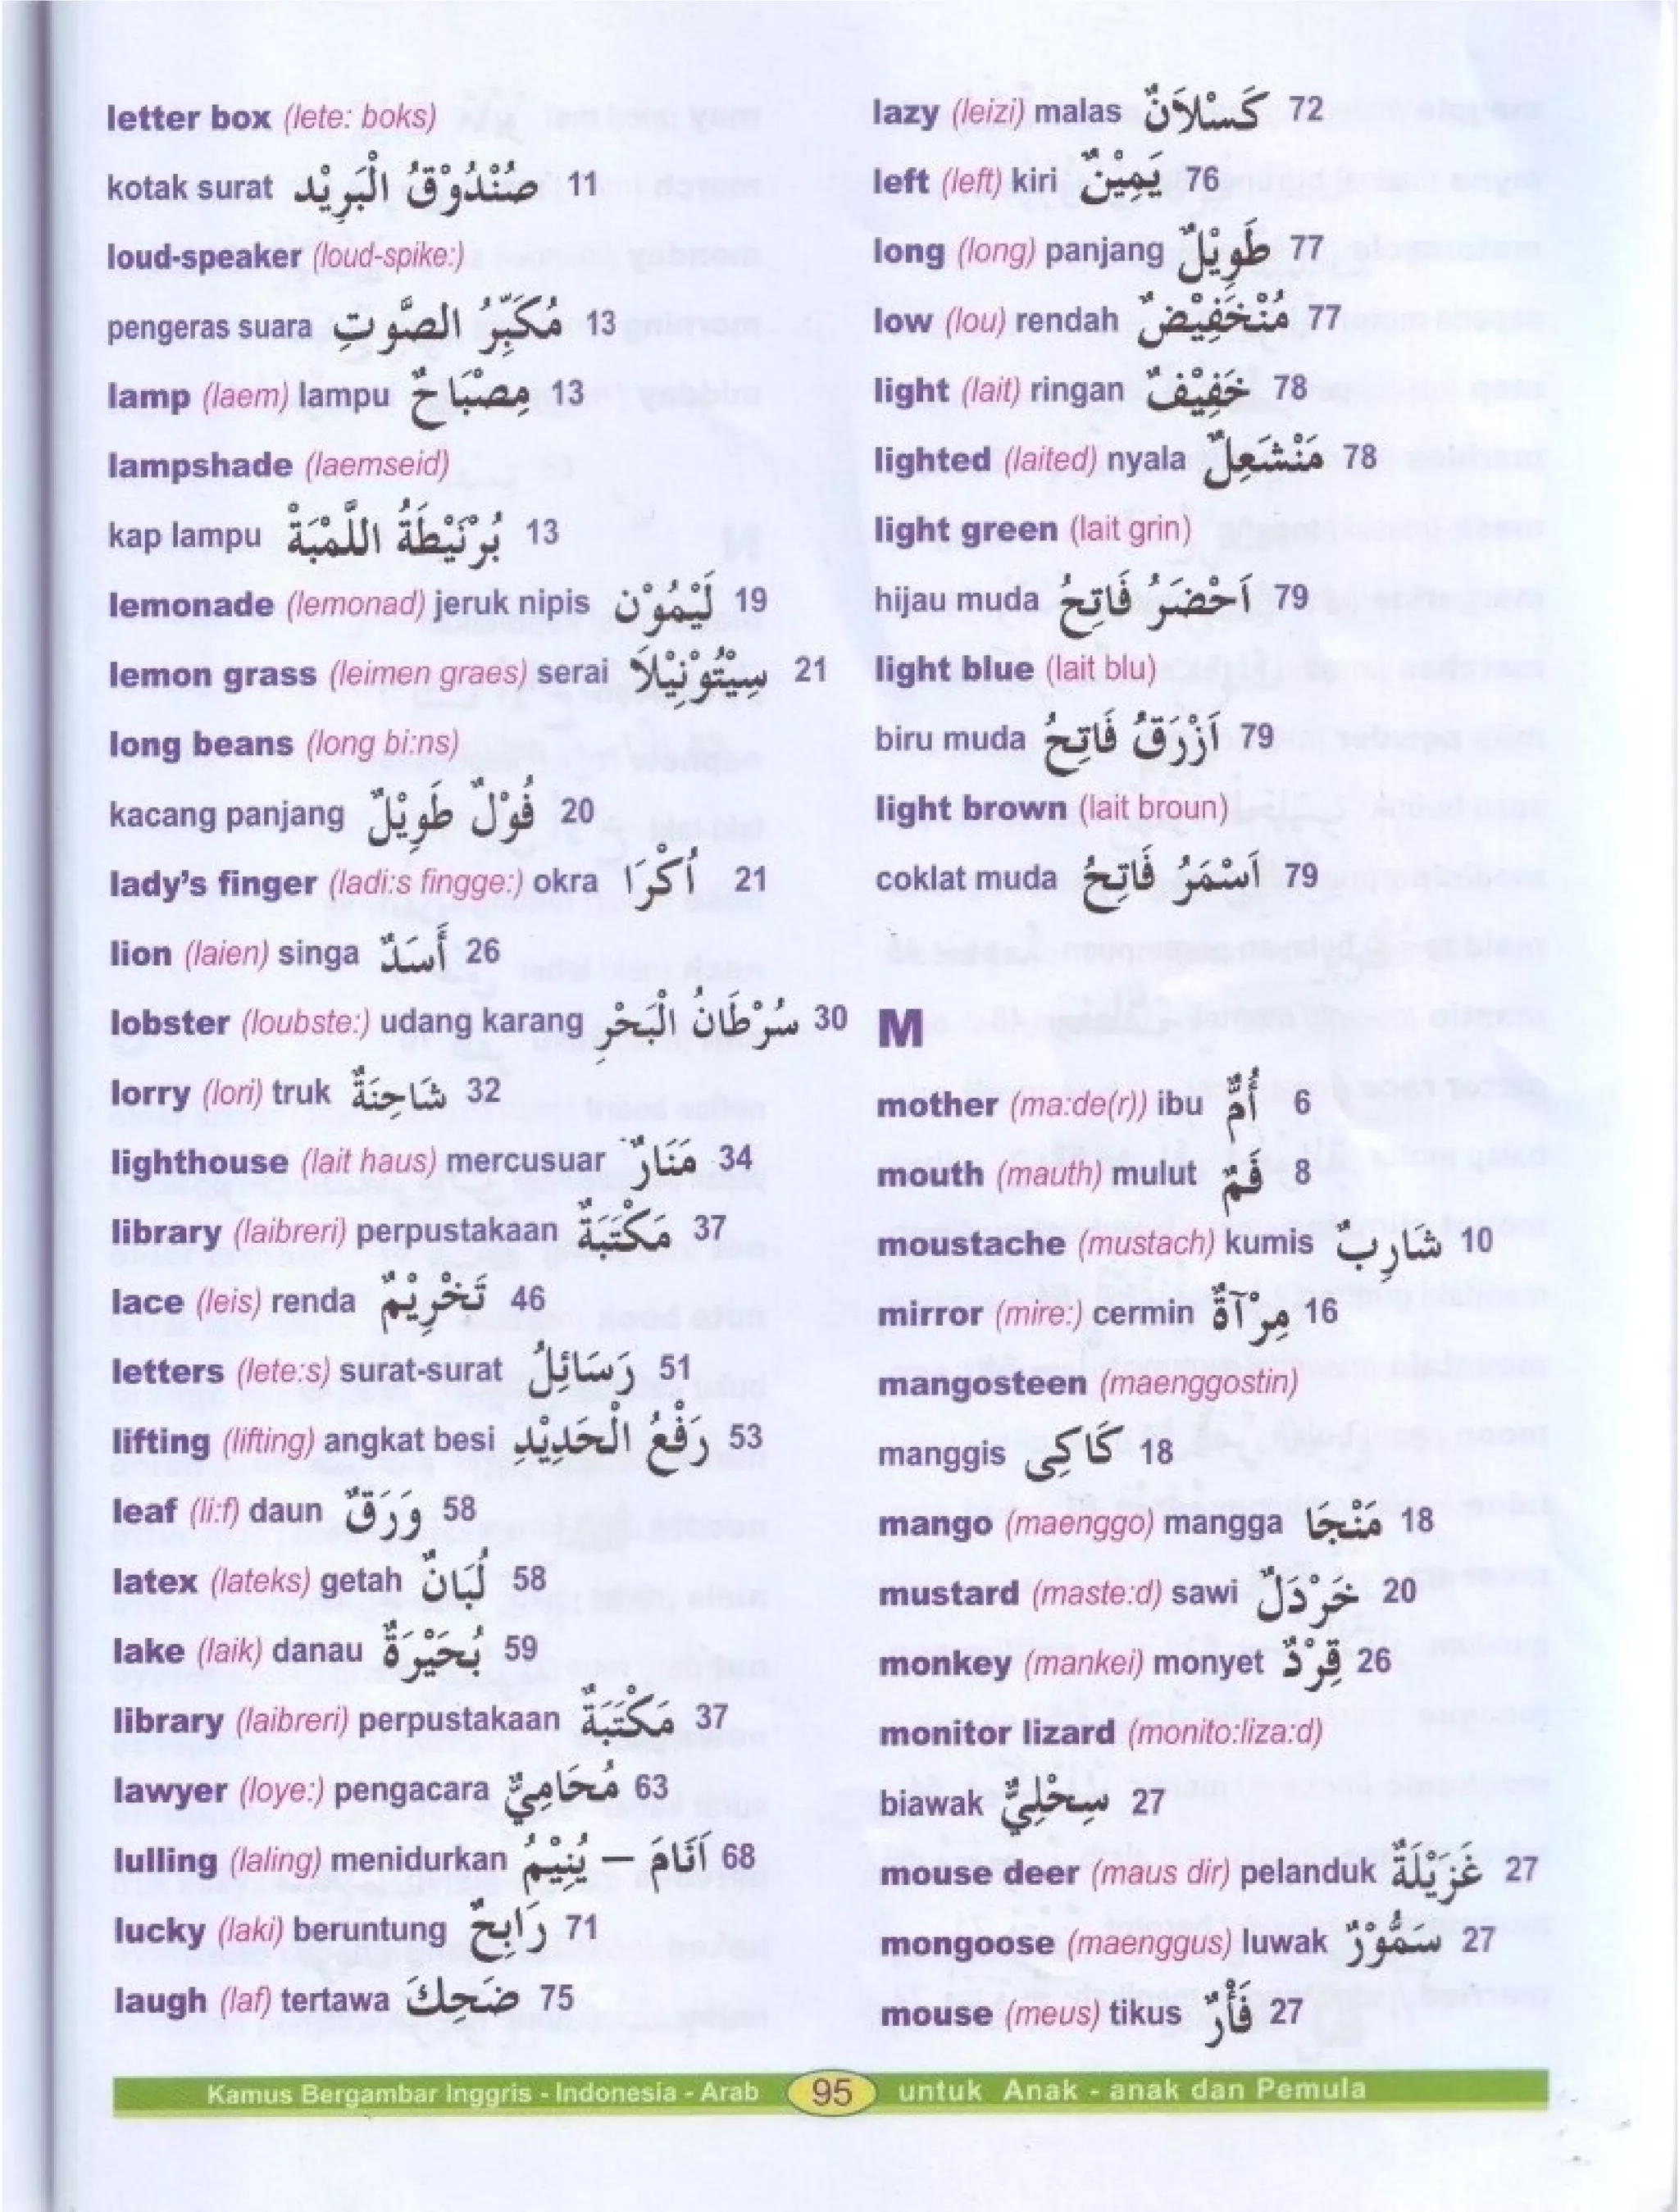 letter box (lete: boks)
kotak surat صُنْدُوْقُ الْبَرِيْد 11
loud-speaker (loud-spike:)
pengeras suara مُكَبِّرُ الصَّوْتِ 13
lamp (laem) lampu مِصْبَاحٌ 13
lampshade (laemseid)
kap lampu بُرْنَيْطَةُ اللَّمْبَةْ 13
lemonade (lemonad) jeruk nipis لَيْمُوْن 19
lemon grass (leimen graes) serai سِيْتُوْنِيْلَا 21
long beans (long bi:ns)
kacang panjang فُوْلٌ طَوِيْلٌ 20
lady's finger (ladi:s fingge:) okra أُكْرَا 21
lion (laien) singa أَسَدٌ 26
lobster (loubste:) udang karang سُرْطَانُ الْبَحْرِ 30
lorry (lori) truk شَاحِنَةٌ 32
lighthouse (lait haus) mercusuar مَنَارٌ 34
library (laibreri) perpustakaan مَكْتَبَةٌ 37
lace (leis) renda تَخْرِيْمٌ 46
letters (lete:s) surat-surat رَسَائِلُ 51
lifting (lifting) angkat besi رَفْعُ الْحَدِيْدِ 53
leaf (li:f) daun وَرَقٌ 58
latex (lateks) getah لُبَانٌ 58
lake (laik) danau بُحَيْرَةٌ 59
library (laibreri) perpustakaan مَكْتَبَةٌ 37
lawyer (loye:) pengacara مُحَامِيٌّ 63
lulling (laling) menidurkan أَنَامَ – يُنِيْمُ 68
lucky (laki) beruntung رَابِحٌ 71
laugh (laf) tertawa ضَحِكَ 75
lazy (leizi) malas كَسْلَانٌ 72
left (left) kiri يَمِيْنٌ 76
long (long) panjang طَوِيْلٌ 77
low (lou) rendah مُنْخَفِيْضٌ 77
light (lait) ringan خَفِيْفٌ 78
lighted (laited) nyala مَنْشَعِلٌ 78
light green (lait grin)
hijau muda أَخْضَرُ فَاتِحُ 79
light blue (lait blu)
biru muda أَزْرَقُ فَاتِحُ 79
light brown (lait broun)
coklat muda أَسْمَرُ فَاتِحُ 79
M
mother (ma:de(r)) ibu أُمٌّ 6
mouth (mauth) mulut فَمٌ 8
moustache (mustach) kumis شَارِبٌ 10
mirror (mire:) cermin مِرْآةٌ 16
mangosteen (maenggostin)
manggis كَاكِى 18
mango (maenggo) mangga مَنْجَا 18
mustard (maste:d) sawi خَرْدَلٌ 20
monkey (mankei) monyet قِرْدٌ 26
monitor lizard (monito:liza:d)
biawak سِحْلِيٌّ 27
mouse deer (maus dir) pelanduk غَزَيْلَةٌ 27
mongoose (maenggus) luwak سَمُّوْرٌ 27
mouse (meus) tikus فَأْرٌ 27
Kamus Bergambar Inggris - Indonesia - Arab 95 untuk Anak - anak dan Pemula